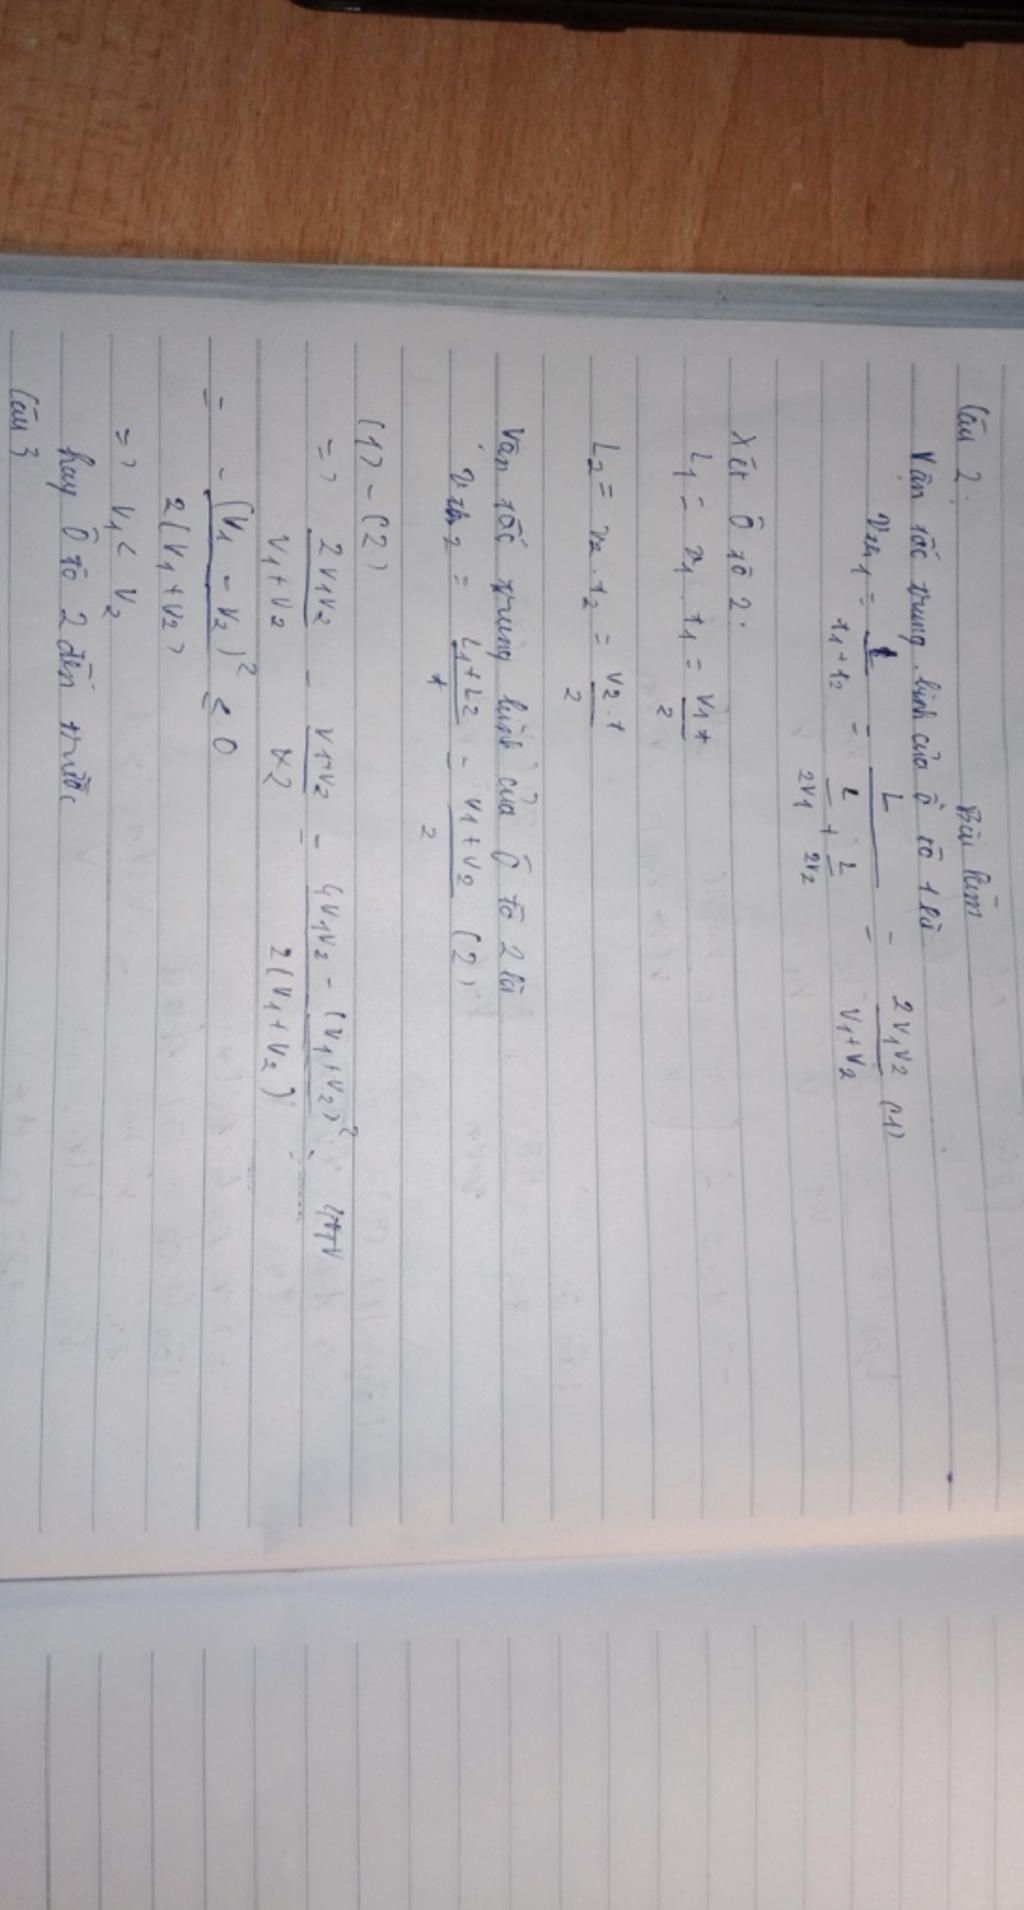 Câu 2: Bài làm
Vận tốc trung bình của ô tô 1 là
vtb1 = L/(t1+t2) = L/(L/2v1 + L/2v2) = 2v1v2/(v1+v2) (1)
Xét ô tô 2:
L1 = v1.t1 = v1t/2
L2 = v2.t2 = v2.t/2
Vận tốc trung bình của ô tô 2 là
vtb2 = (L1+L2)/t = (v1+v2)/2 (2)
(1) - (2)
=> 2v1v2/(v1+v2) - (v1+v2)/2 = (4v1v2 - (v1+v2)²)/(2(v1+v2))
= -(v1 - v2)²/(2(v1+v2)) ≤ 0
=> v1 < v2
hay ô tô 2 đến trước
Câu 3